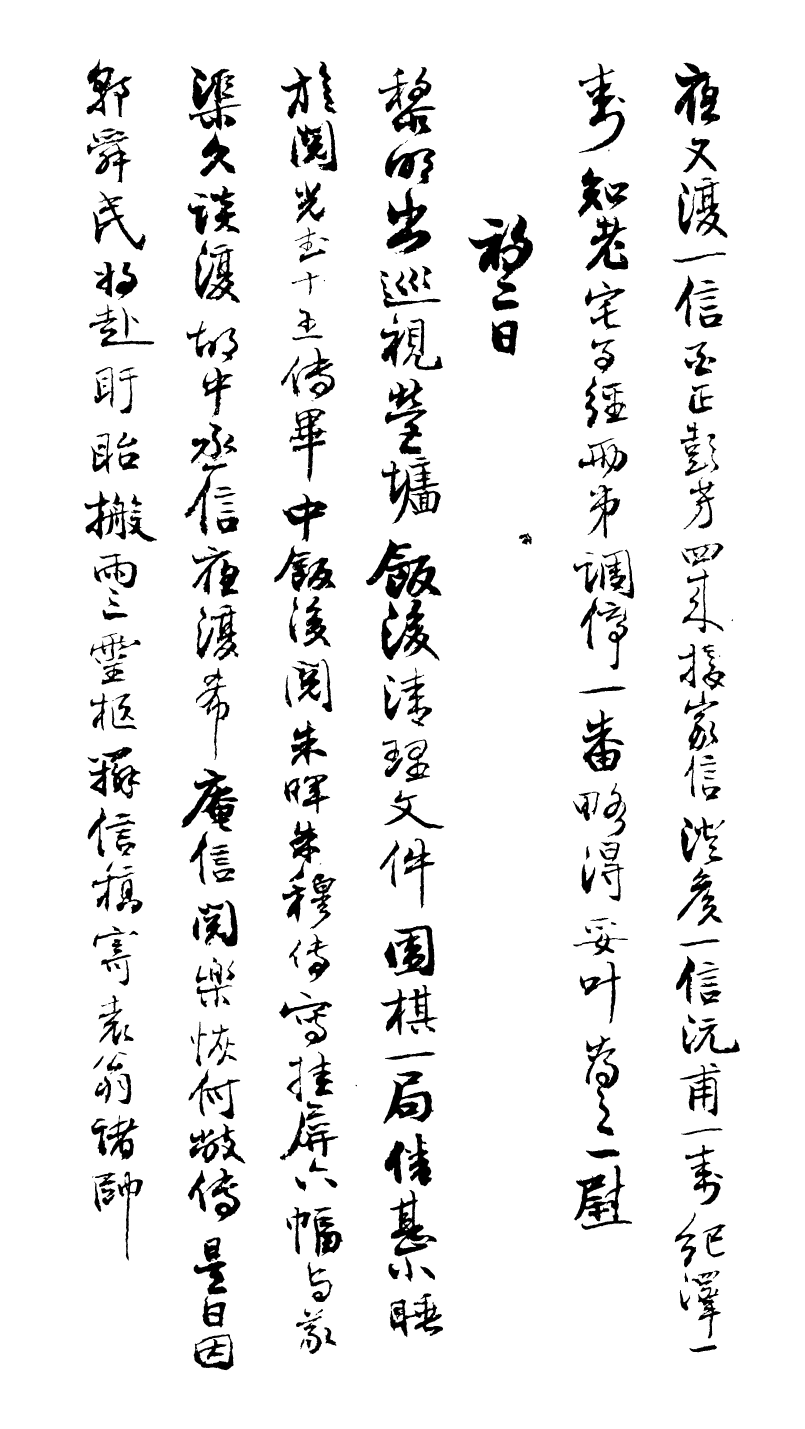 夜又渡一信酉正彭芳四來接家信澄侯一信沅甫一書紀澤一
書知老宅已經兩弟調停一番略得妥叶為之一慰
初二日
黎明出巡視營墻飯後清理文件圍棋一局倦甚小睡
旋閱光武十王傳畢中飯後閱朱暉朱穆傳寫挂屏六幅与蒙
渠久談渡胡中丞信夜渡希庵信閱樂恢何敞傳是日因
郭舜民將赴盱眙搬雨三靈柩辦信稿寄袁翁諸帥